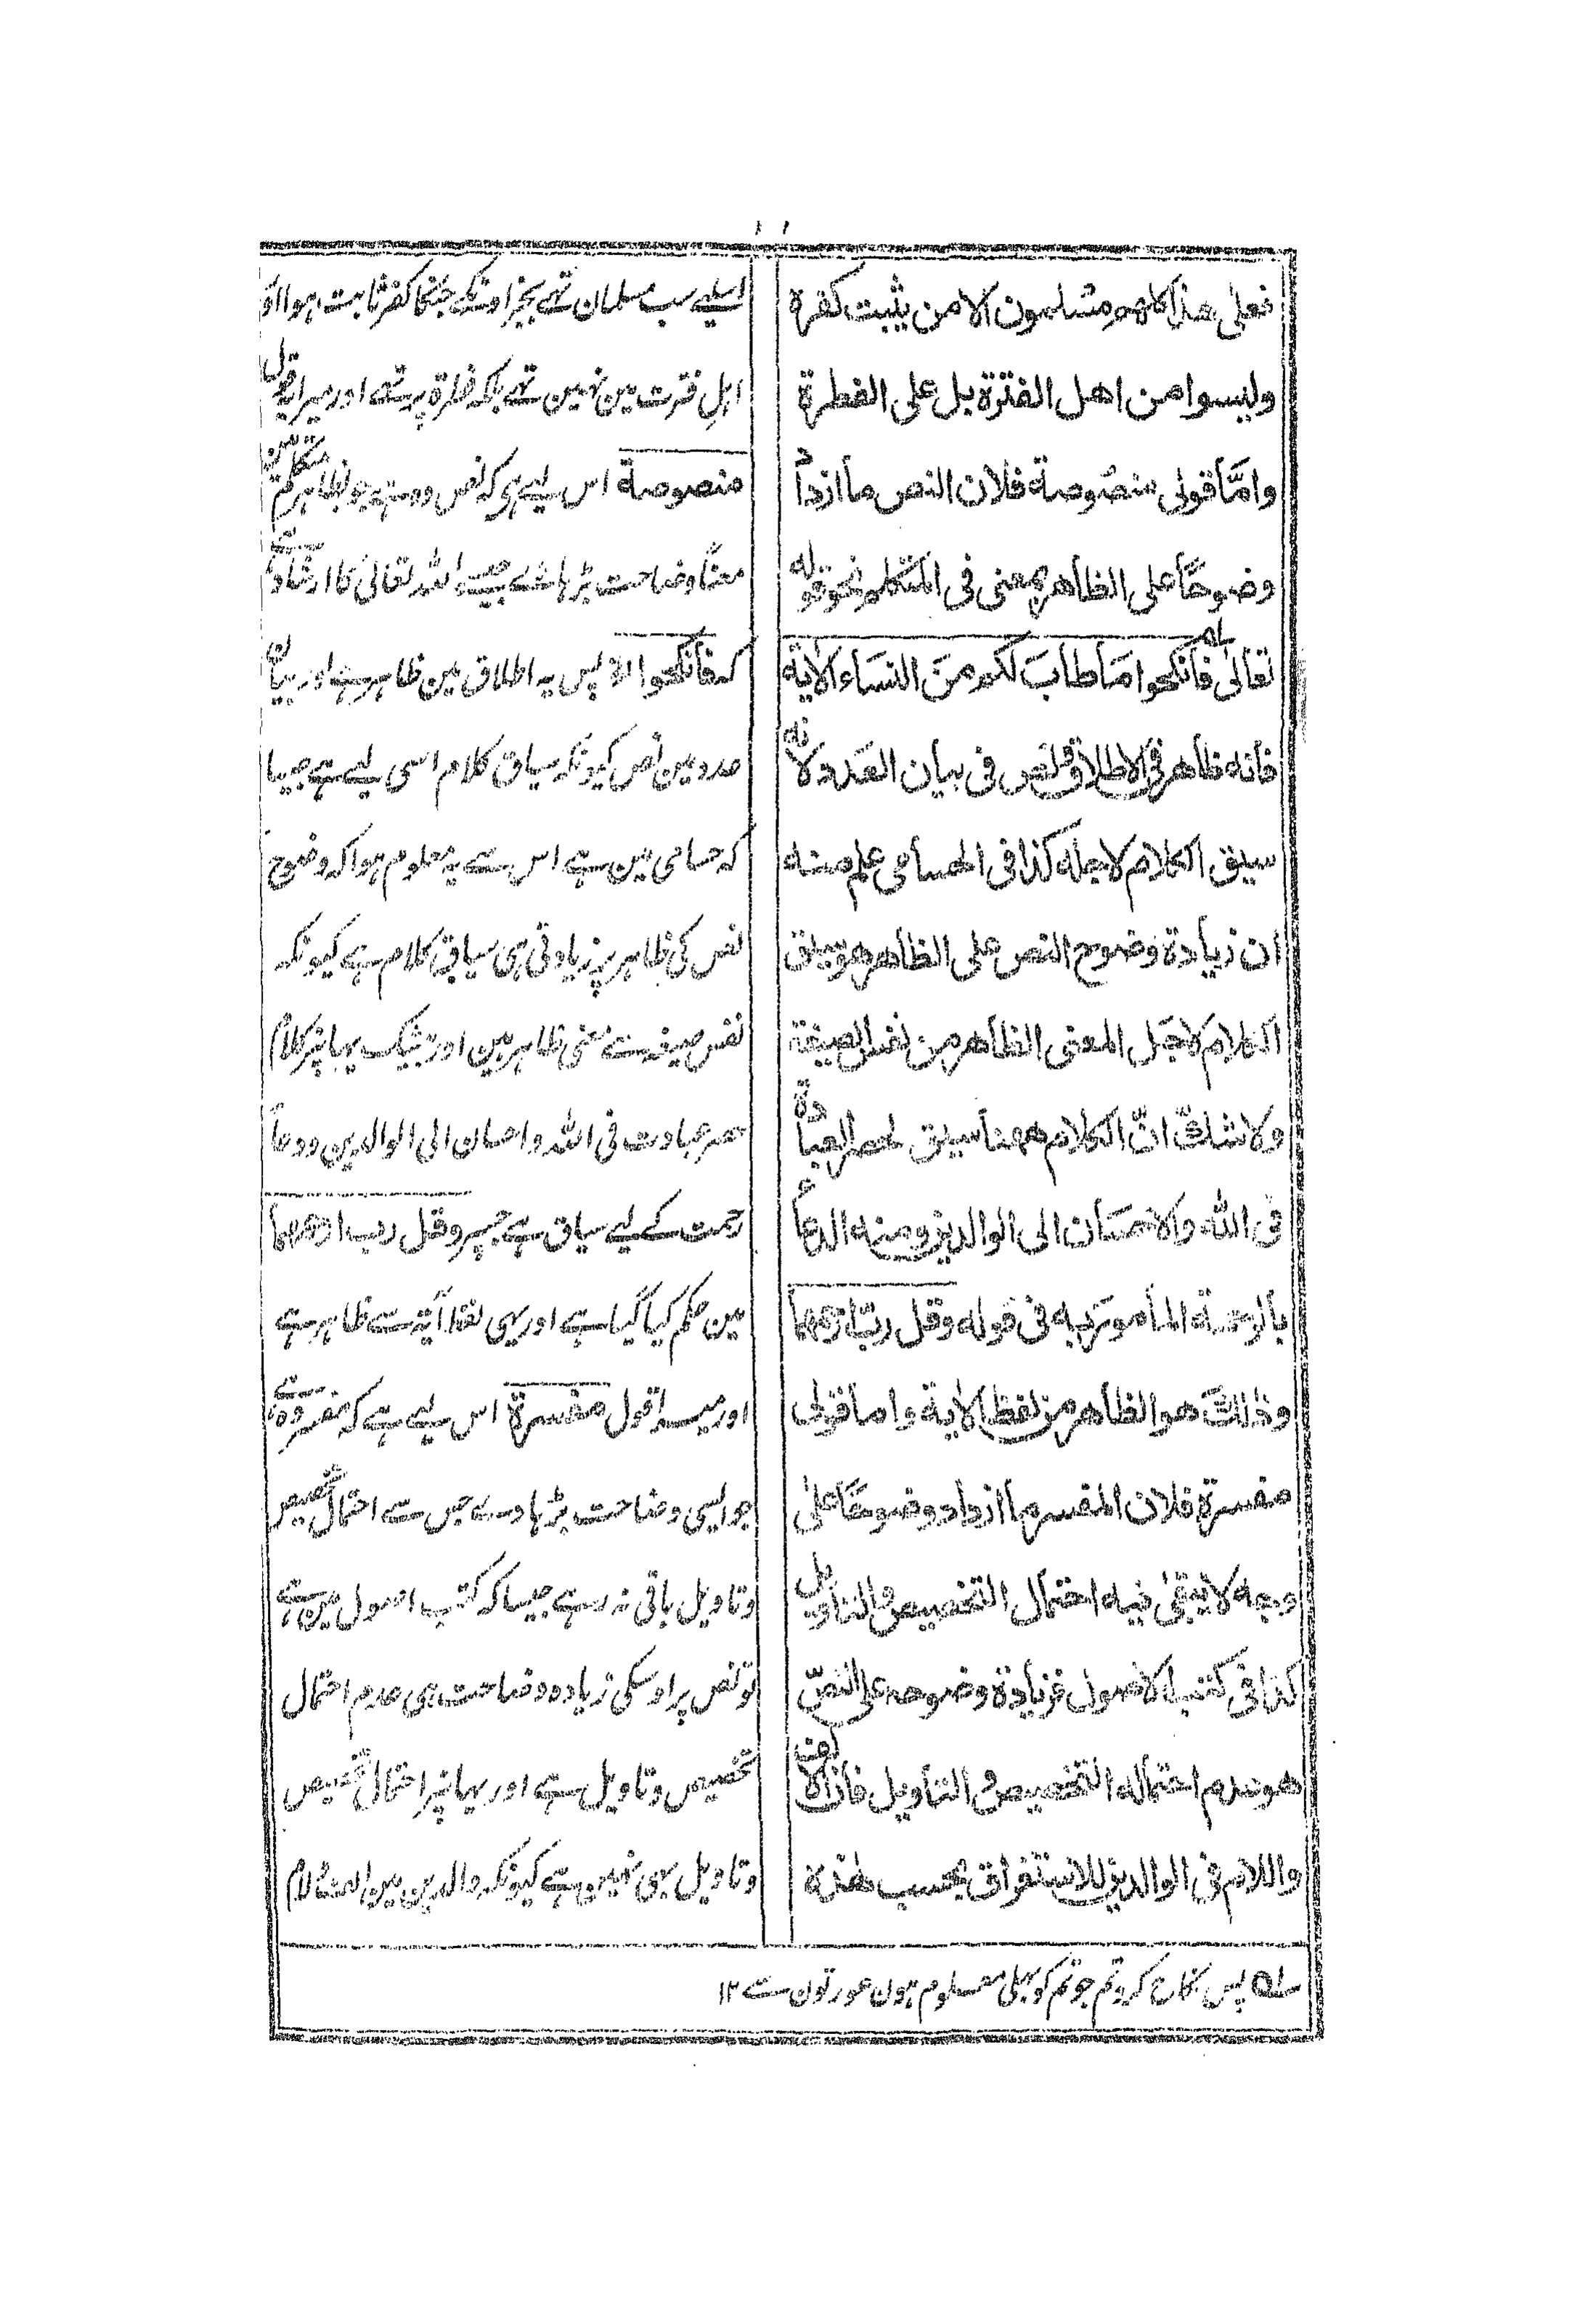 ۱۱
فعلی هذا کلهم مسلمون الا من یثبت کفره
ولیسوا من اهل الفترة بل علی الفطرة
وامّا قولی منصُوصة فلان النص ما ازداد
وضوحًا علی الظاهر بمعنی فی المتکلم نحو قوله
تعالیٰ فانکحوا مَا طابَ لکم منَ النسَاء الاٰیة
فانه ظاهر فی الاطلاق ونص فی بیان العَدد لانه
سیق الکلام لاجله کذا فی الحسامی علم منه
ان زیادة وضوح النص علی الظاهر هو سیق
الکلام لاجَل المعنی الظاهر من نفس الصیغة
ولا شك انّ الکلام ههنا سیق لحصر العبادة
فی الله والاحسَان الی الوالدین ومنه الدعاء
بالرحمة المأمور به فی قوله وقل ربّ ارحمهما
وذٰلك هو الظاهر من لفظ الاٰیة واما قولی
مفسرة فلان المفسر ما ازداد وضوحًا علیٰ
وجه لا یبقیٰ فیه احتمال التخصیص والتاویل
کذا فی کتب الاصول فزیادة وضوحه علی النصّ
هو عدم احتماله التخصیص والتاویل فان الالف
واللام فی الوالدین للاستغراق بحسب هٰذه
اسلیے سب مسلمان تھے بجز اونکے جنکا کفر ثابت ہوا اور
اہلِ فترت مین نہین تھے بلکہ فطرة پر تھے اور میرا قول
منصوصة اس لیے ہی کہ نص وہ ہے جو بظاہر متکلم مین
معنًا وضاحت بڑہائے جیسے اللہ تعالیٰ کا ارشاد ہے
کہ فانکحوا الاٰیۃ پس یہ اطلاق مین ظاہر ہے اور بیان
عدد مین نص کیونکہ سیاق کلام اسی لیے ہے جیسا
کہ حسامی مین ہے اس سے یہ معلوم ہوا کہ وضوح
نص کی ظاہر پر زیادتی ہی سیاقِ کلام ہے کیونکہ
نفس صیغہ سے معنی ظاہر ہین اور بیشک یہانپر کلام
حصر عبادت فی اللہ واحسان الی الوالدین ودعاء
رحمت کے لیے سیاق ہے جسپر وقل رب ارحمهما
مین حکم کیا گیا ہے اور یہی لفظ اٰیۃ سے ظاہر ہے
اور میرا قول مفسرة اس لیے ہے کہ مفسر وہ ہے
جو ایسی وضاحت بڑہا دے جس سے احتمال تخصیص
وتاویل باقی نہ رہے جیسا کہ کتب اصول مین ہے
تو نص پر اوسکی زیادہ وضاحت ہی عدم احتمال
تخصیص وتاویل ہے اور یہانپر احتمال تخصیص
وتاویل بہی نہین ہے کیونکہ والدین مین الف لام
سلہ پس نکاح کرو تم جو تم کو بھلی معلوم ہون عورتون سے ۱۲